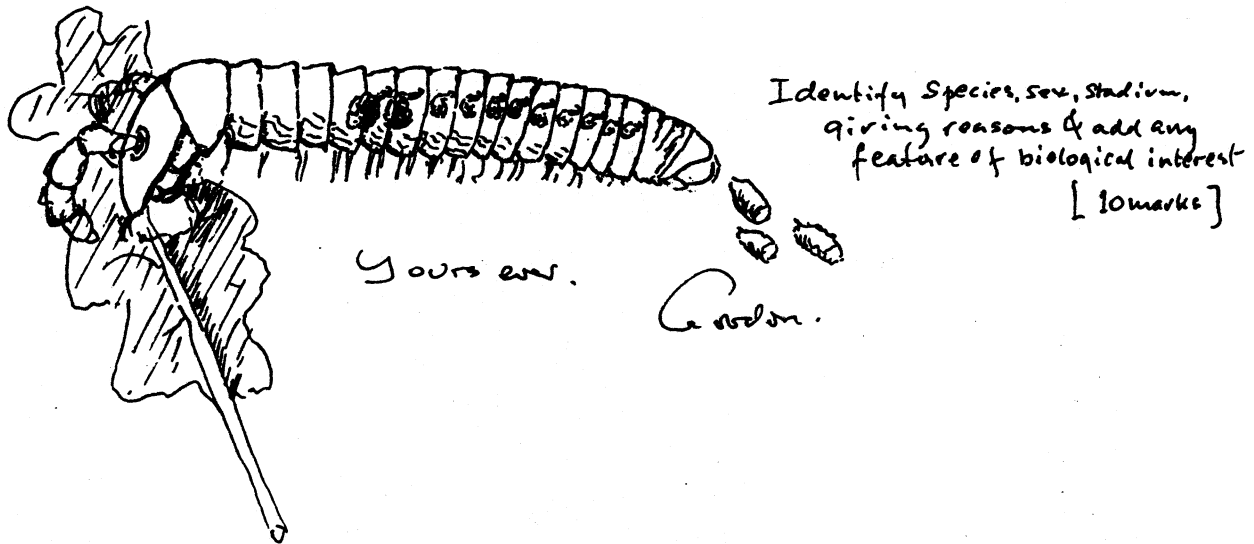 Identify Species, sex, stadium,
giving reasons & add any
feature of biological interest
[ 10 marks ]
Yours ever.
Gordon.